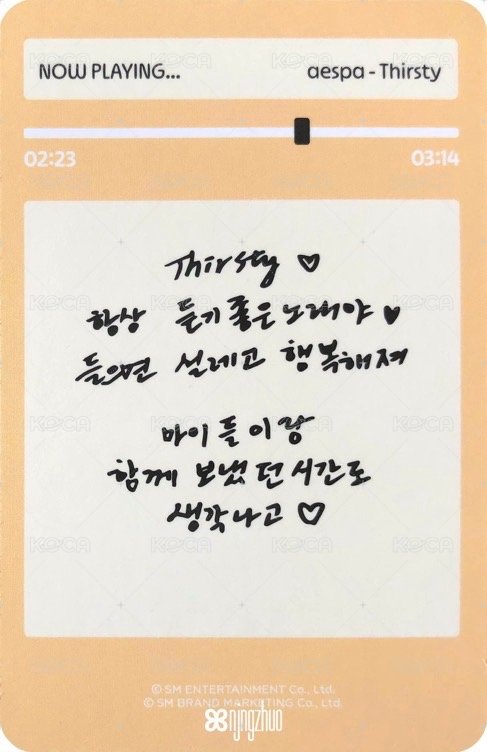 NOW PLAYING... aespa - Thirsty
02:23 03:14
Thirsty ♡
항상 듣기 좋은 노래야 ♥
들으면 설레고 행복해져
마이들이랑
함께 보냈던 시간도
생각나고 ♡
KOCA
© SM ENTERTAINMENT Co., Ltd.
© SM BRAND MARKETING Co., Ltd.
njngzhuo